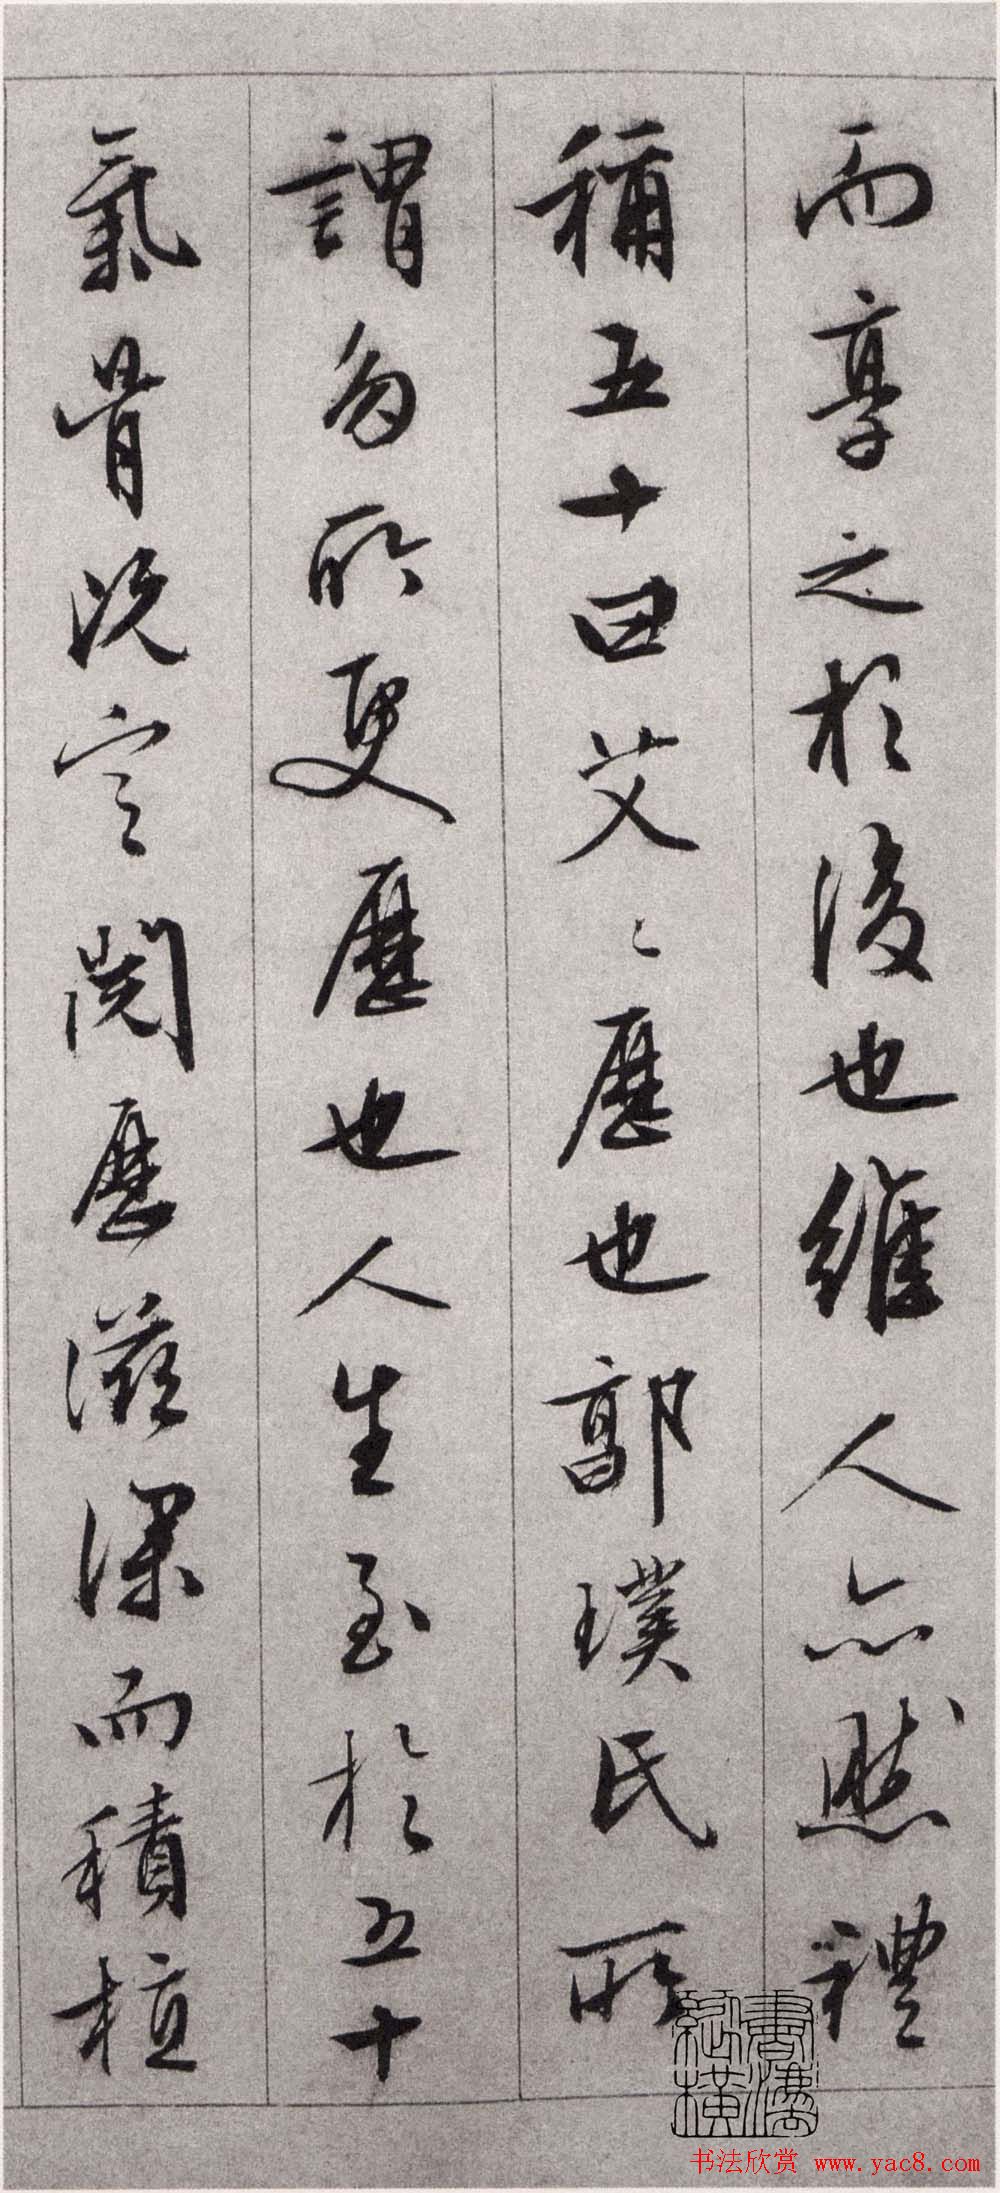 而享之於後也維人亦然禮
稱五十曰艾〻歷也郭璞氏所
謂多所更歷也人生至於五十
氣骨既定閱歷滋深而積植
書灋
縱橫
书法欣赏 www.yac8.com